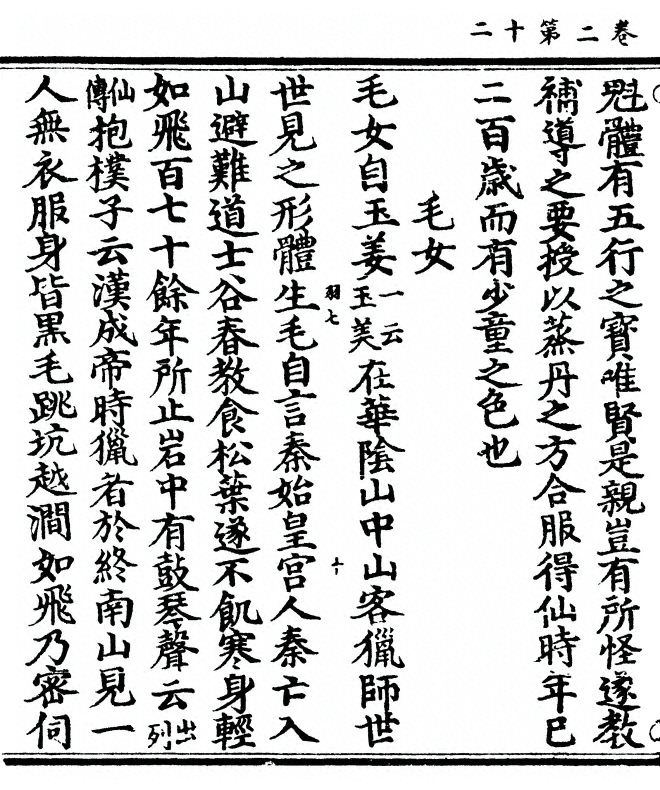 卷二第十二
魁體有五行之寶唯賢是親豈有所怪遂教
補導之要授以蒸丹之方合服得仙時年已
二百歲而有少童之色也
毛女
毛女自玉姜一云玉美在華陰山中山客獵師世
羽七
十
世見之形體生毛自言秦始皇宮人秦亡入
山避難道士谷春教食松葉遂不飢寒身輕
如飛百七十餘年所止岩中有鼓琴聲云出列
仙傳抱樸子云漢成帝時獵者於終南山見一
人無衣服身皆黑毛跳坑越澗如飛乃密伺